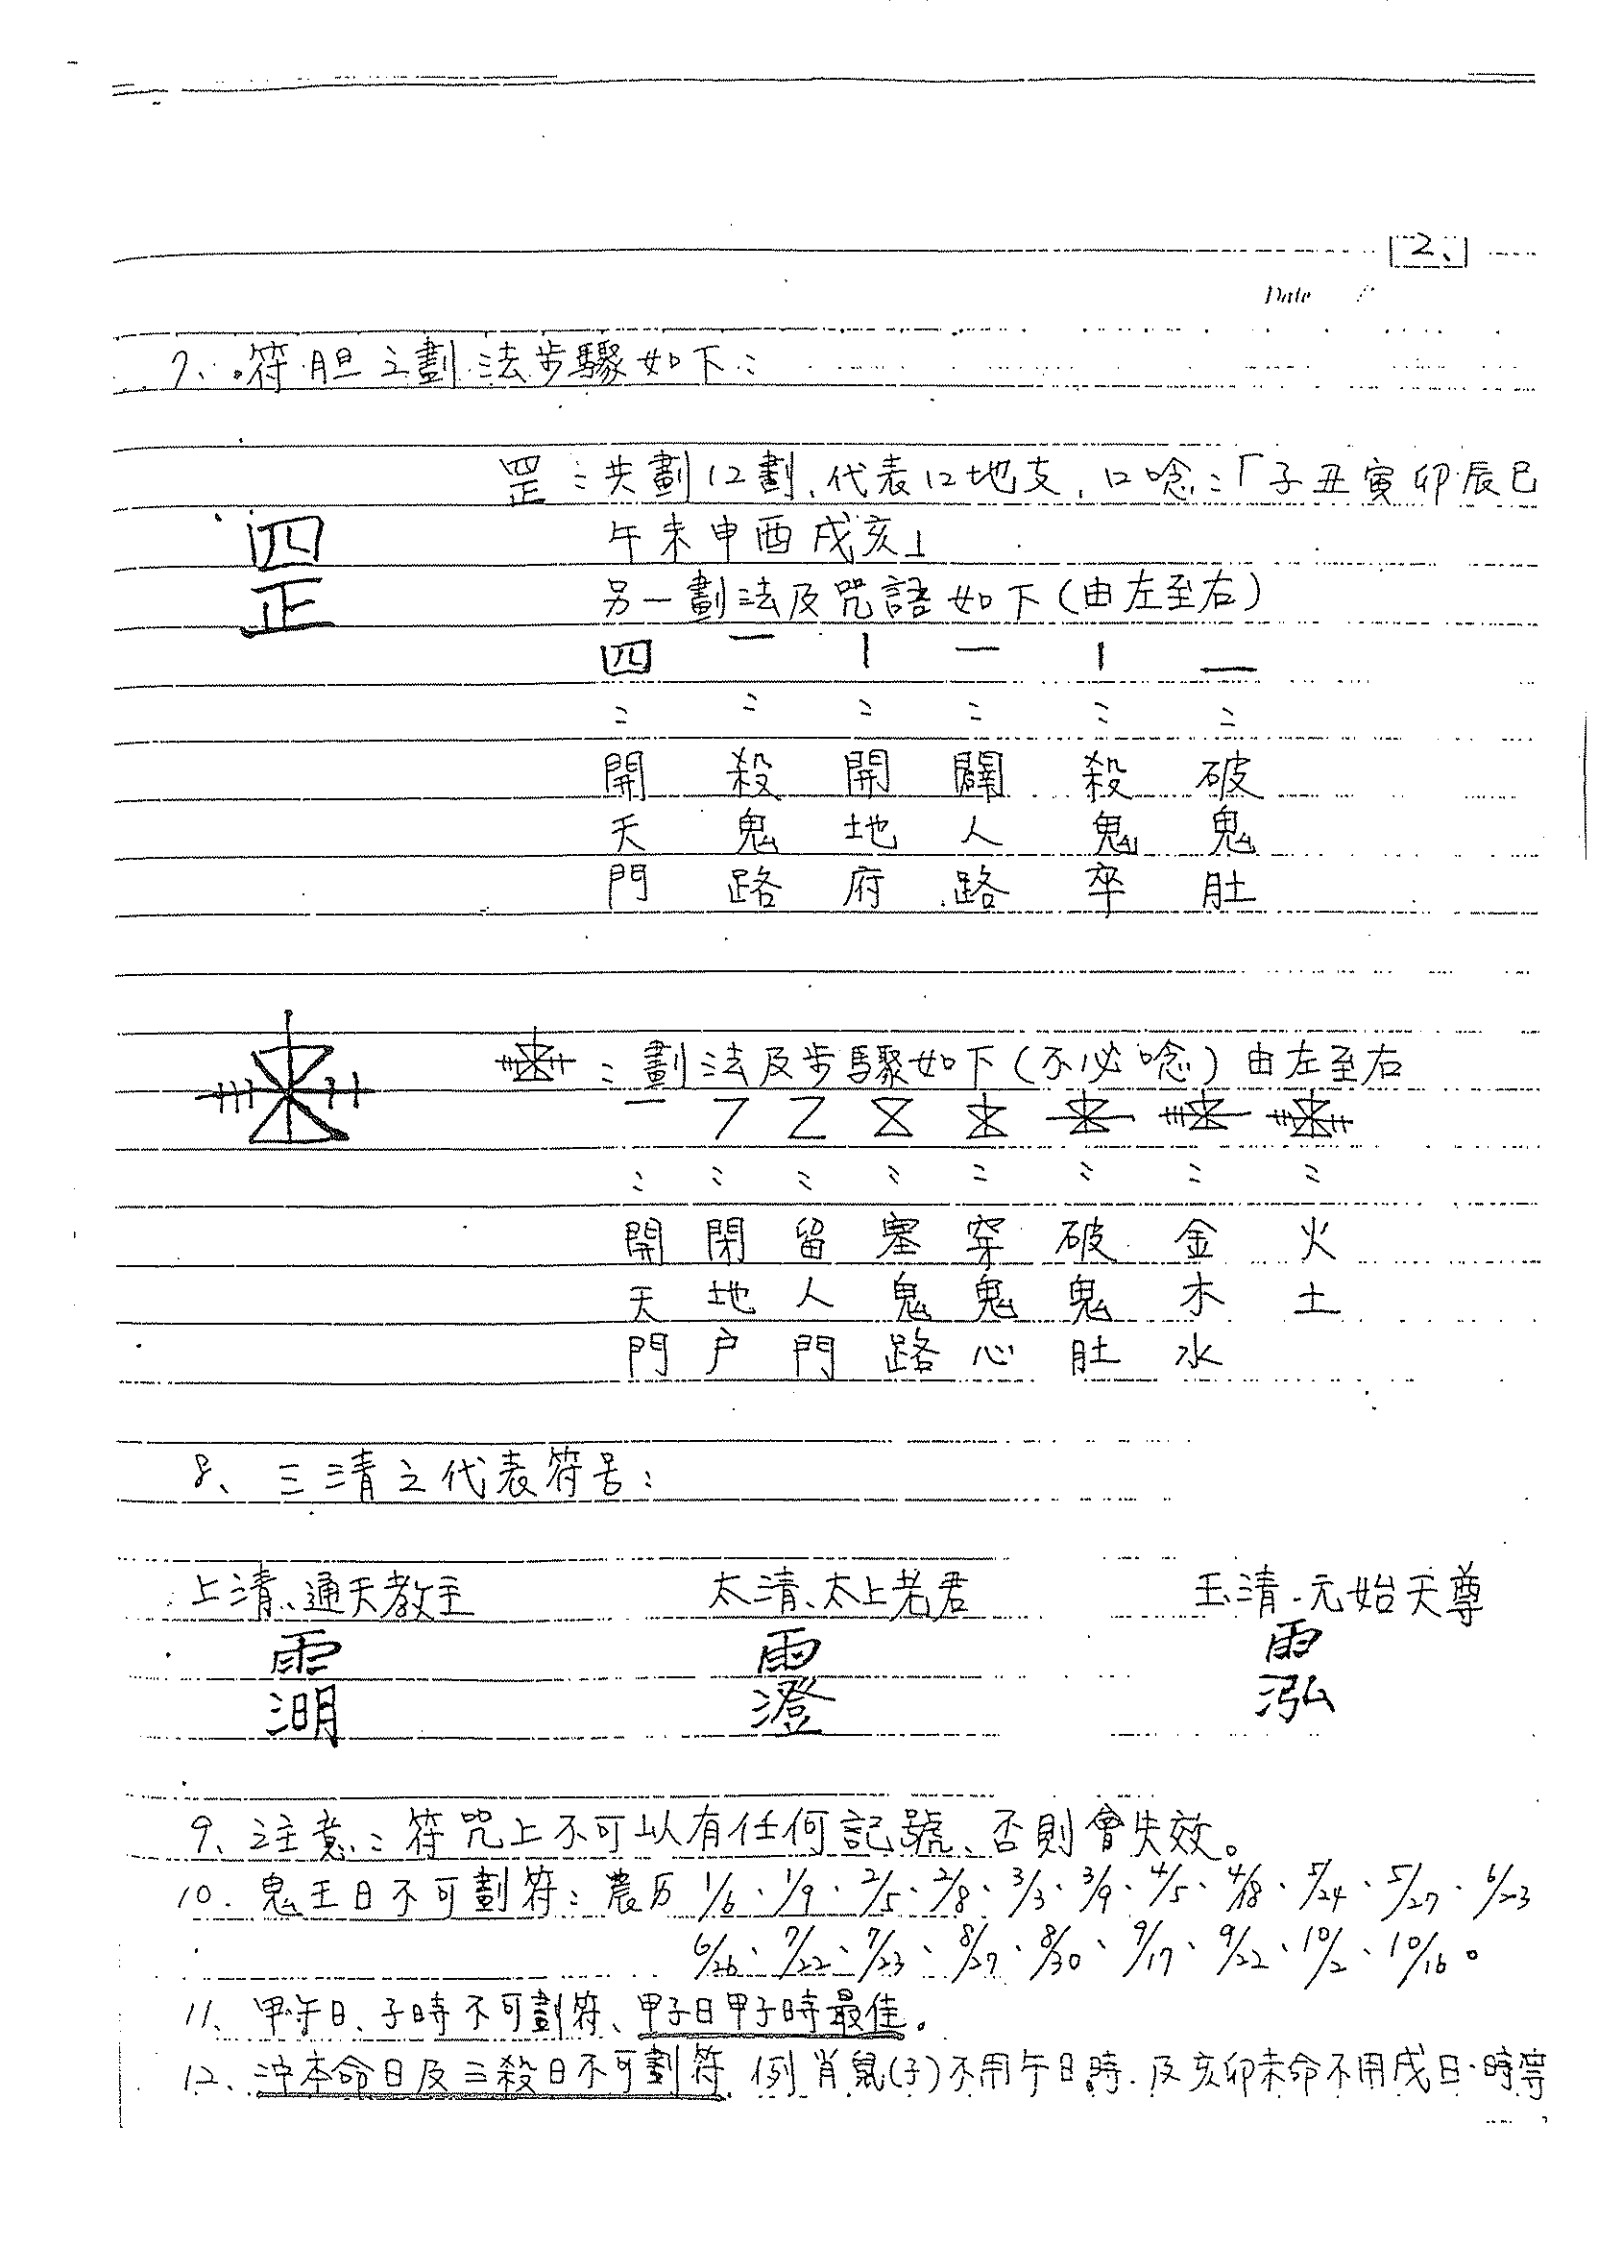 2、
Date
7、符胆之劃法步驟如下：
罡：共劃12劃，代表12地支，口唸：「子丑寅卯辰巳
罡
午未申酉戌亥」
另一劃法及咒語如下（由左至右）
四 一 丨 一 丨 一
： ： ： ： ： ：
開 殺 開 闢 殺 破
天 鬼 地 人 鬼 鬼
門 路 府 路 卒 肚
：劃法及步驟如下（不必唸）由左至右
： ： ： ： ： ： ： ：
開 閉 留 塞 穿 破 金 火
天 地 人 鬼 鬼 鬼 木 土
門 户 門 路 心 肚 水
8、三清之代表符号：
上清、通天教主 太清、太上老君 玉清、元始天尊
雨 雨 雨
澗 澄 泓
9、注意：符咒上不可以有任何記號、否則會失效。
10、鬼王日不可劃符：農历 1/6、1/9、2/5、2/8、3/3、3/9、4/5、4/18、5/24、5/27、6/23
6/26、7/22、7/23、8/27、8/30、9/17、9/22、10/2、10/16。
11、甲午日、子時不可劃符、甲子日甲子時最佳。
12、冲本命日及三殺日不可劃符 例肖鼠(子)不用午日時．及亥卯未命不用戌日．時等